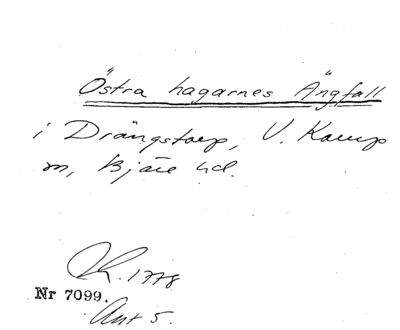 Östra hagarnes Ängfall
i Drängstorp, V. Karup
sn, Bjäre hd.
K. 1778
Nr 7099.
Akt 5.